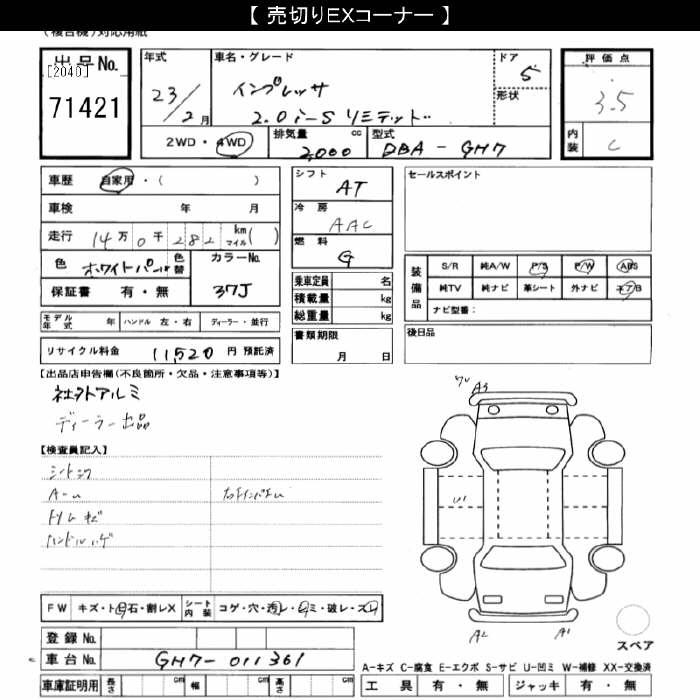 【 売切りEXコーナー 】
(複合機)対応用紙
出品No.
[2040]
71421
年式
23/2月
車名・グレード
インプレッサ
2.0i-S リミテッド
ドア
5
形状
評価点
3.5
内装
C
2WD・4WD
排気量 cc
2000
型式
DBA-GH7
車歴 自家用・( )
車検 年 月
走行 14万0千282 km マイル( )
色 ホワイトパール
色替
カラーNo.
37J
保証書 有・無
シフト
AT
冷房
AAC
燃料
G
乗車定員 名
積載量 kg
総重量 kg
書類期限
月 日
セールスポイント
装備品
S/R 純A/W P/S P/W ABS
純TV 純ナビ 革シート 外ナビ エアB
ナビ型番:
後日品
モデル年式 年 ハンドル 左・右 ディーラー・並行
リサイクル料金 11,520 円 預託済
【出品店申告欄(不良箇所・欠品・注意事項等)】
社外アルミ
ディーラー出品
【検査員記入】
トリムキズ
ハンドルハゲ
A3
U1
A2
A1
FW キズ・ト石・割レX
シート内装 コゲ・穴・汚レ・シミ・破レ・スレ
スペア
登録No.
車台No. GH7-011361
A-キズ C-腐食 E-エクボ S-サビ U-凹ミ W-補修 XX-交換済
車庫証明用 長さ cm 幅 cm 高さ cm
工具 有・無 ジャッキ 有・無